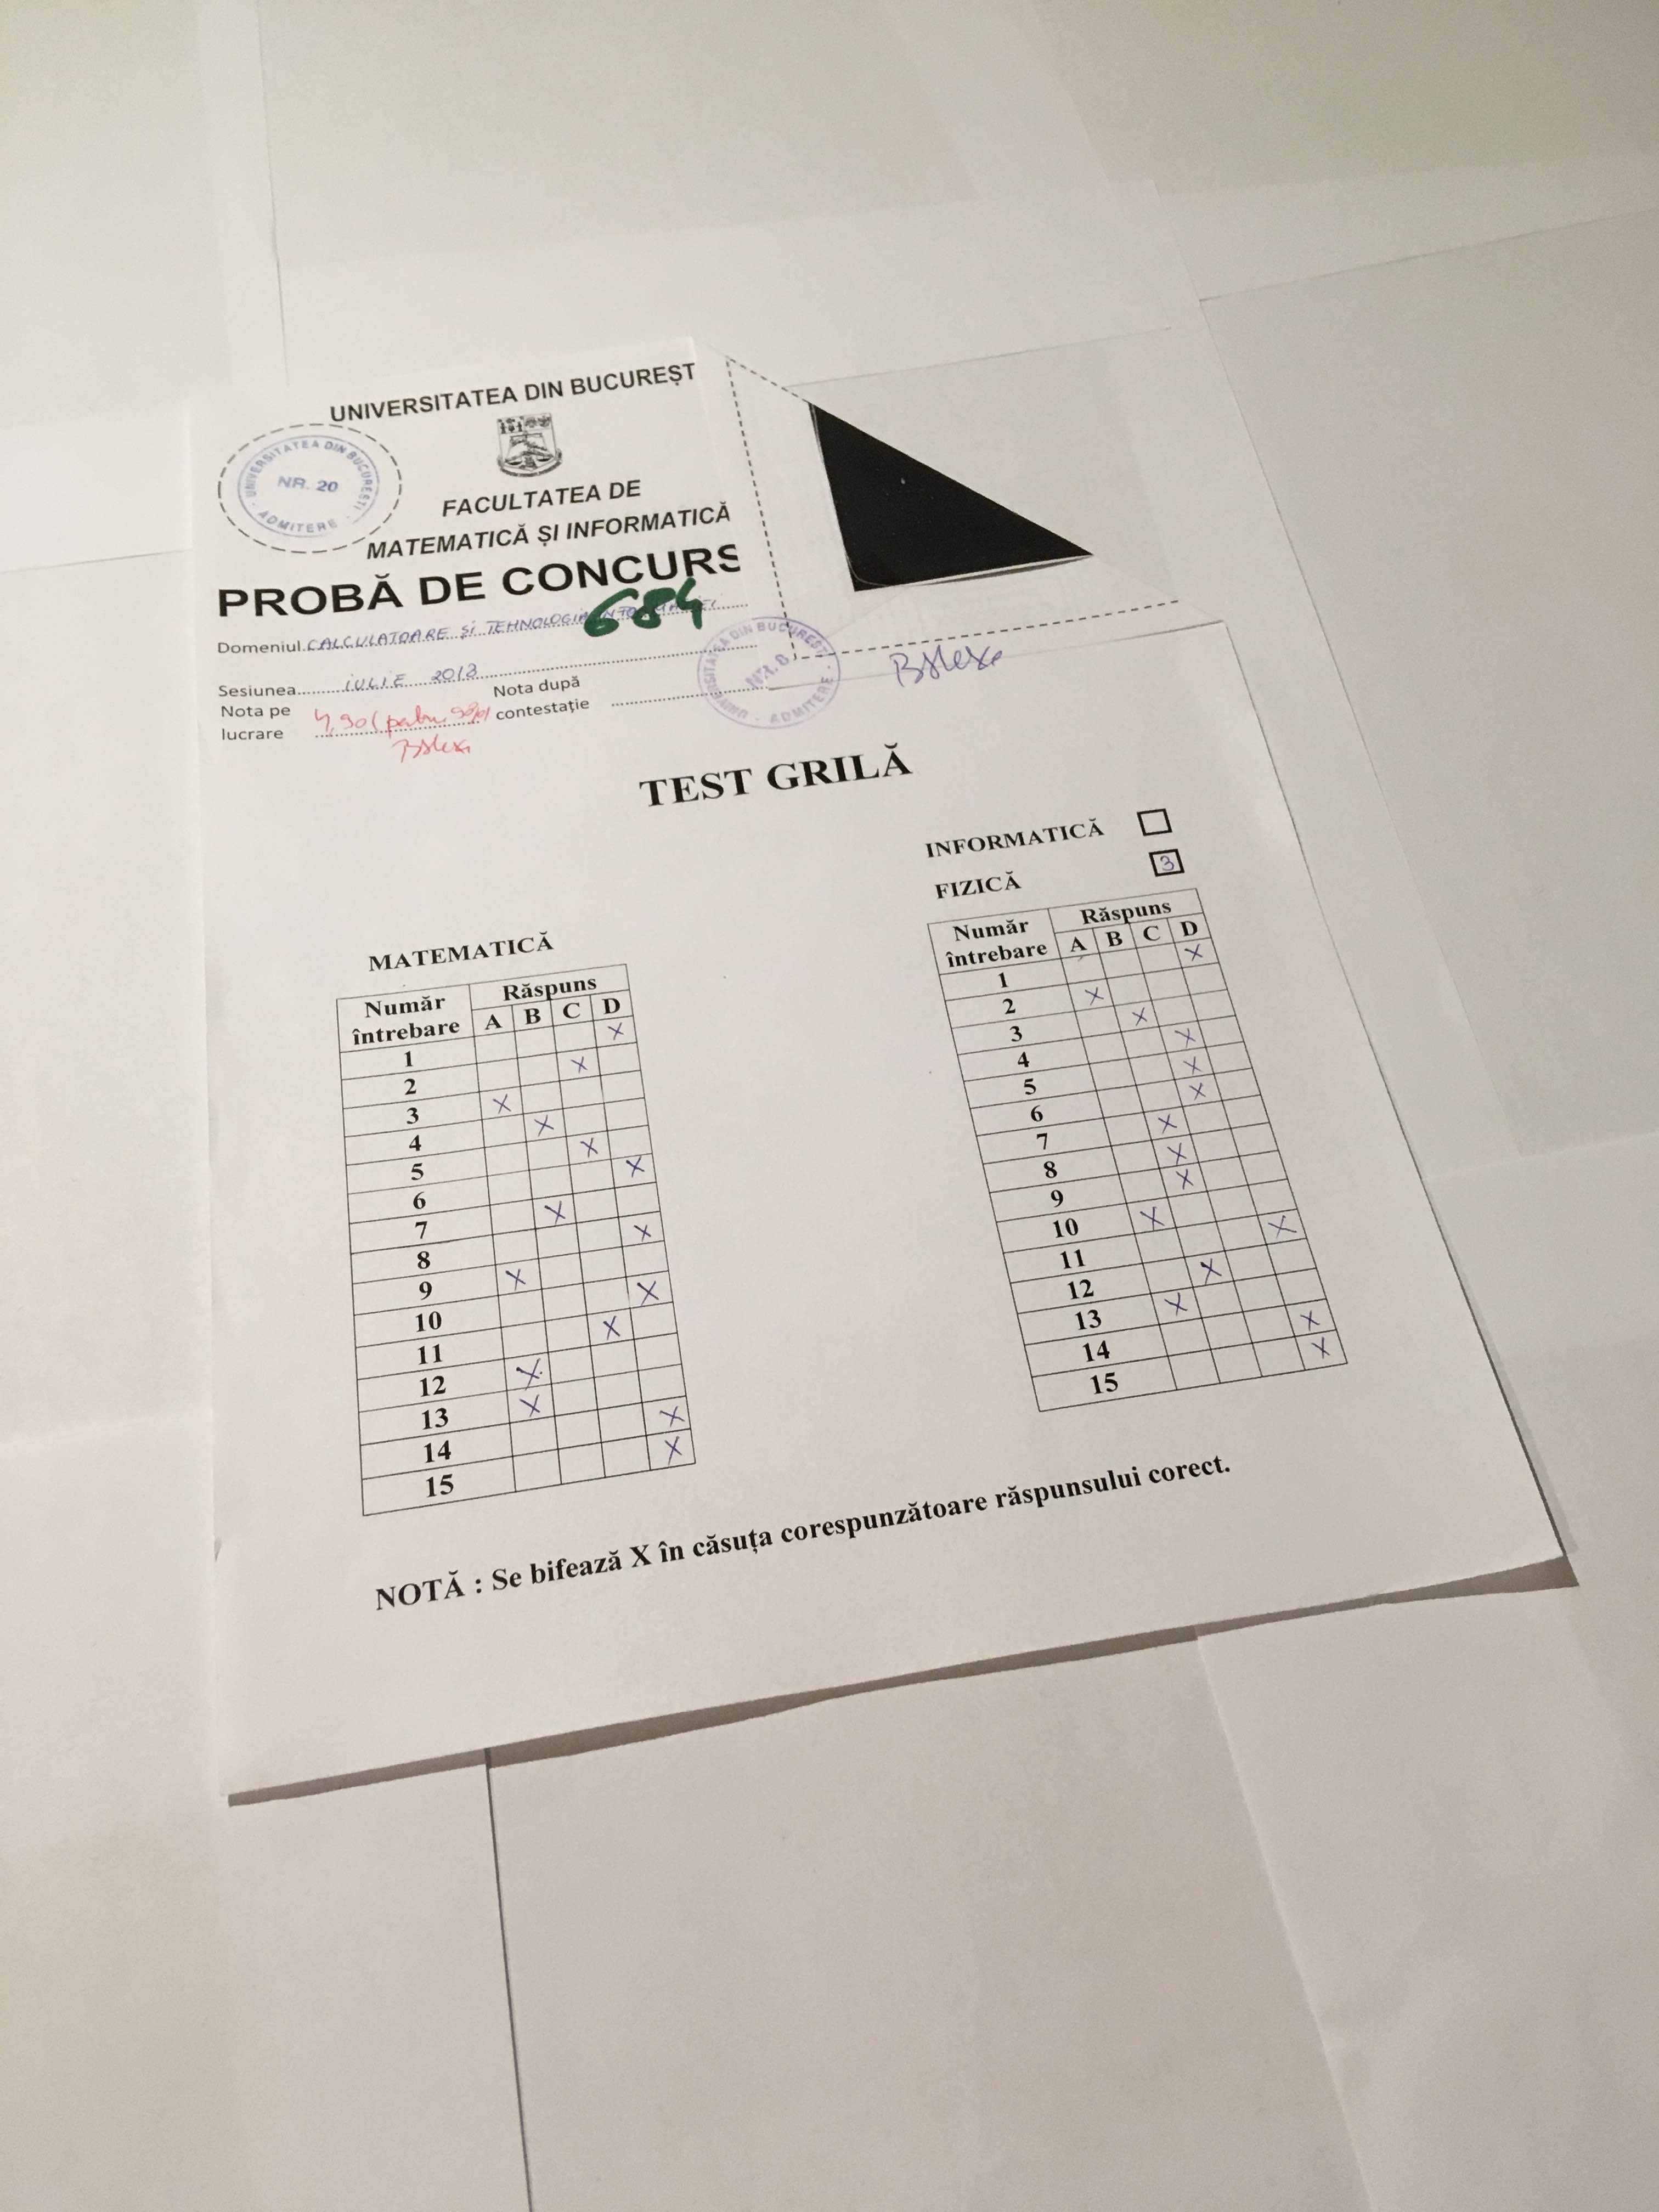 UNIVERSITATEA DIN BUCUREȘT
UNIVERSITATEA DIN BUCUREȘTI
NR. 20
ADMITERE
FACULTATEA DE
MATEMATICĂ ȘI INFORMATICĂ
PROBĂ DE CONCURS
684
Domeniul CALCULATOARE ȘI TEHNOLOGIA INFORMAȚIEI
Sesiunea IULIE 2018
Nota pe lucrare 4,90 (patru 90%)
Nota după contestație
DIN BUCUREȘTI
ADMITERE
TEST GRILĂ
INFORMATICĂ
FIZICĂ 3
MATEMATICĂ
Număr întrebare Răspuns
A B C D
1 X
2 X
3 X
4 X
5 X
6 X
7 X
8 X
9 X
10 X
11 X
12 X
13 X
14 X
15 X
Număr întrebare Răspuns
A B C D
1 X
2 X
3 X
4 X
5 X
6 X
7 X
8 X
9 X
10 X
11 X
12 X
13 X
14 X
15 X
NOTĂ : Se bifează X în căsuța corespunzătoare răspunsului corect.